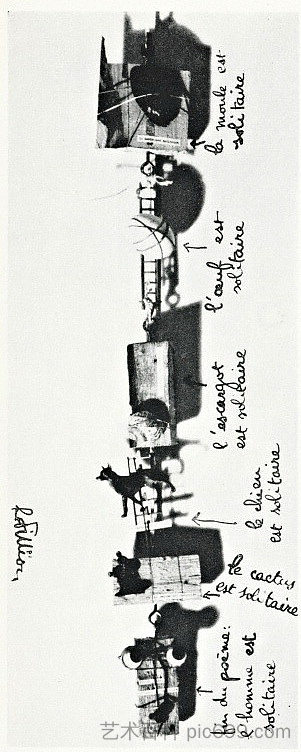 la moule est
solitaire
l'œuf est
solitaire
l'escargot
est solitaire
le chien
est solitaire
le cactus
est solitaire
fin du poème:
l'homme est
solitaire
艺术百科 pic699.com